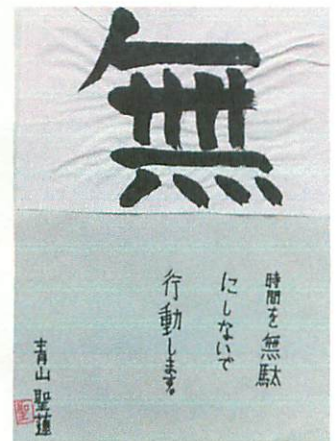 無
時間を無駄
にしないで
行動します。
青山聖蓮
聖